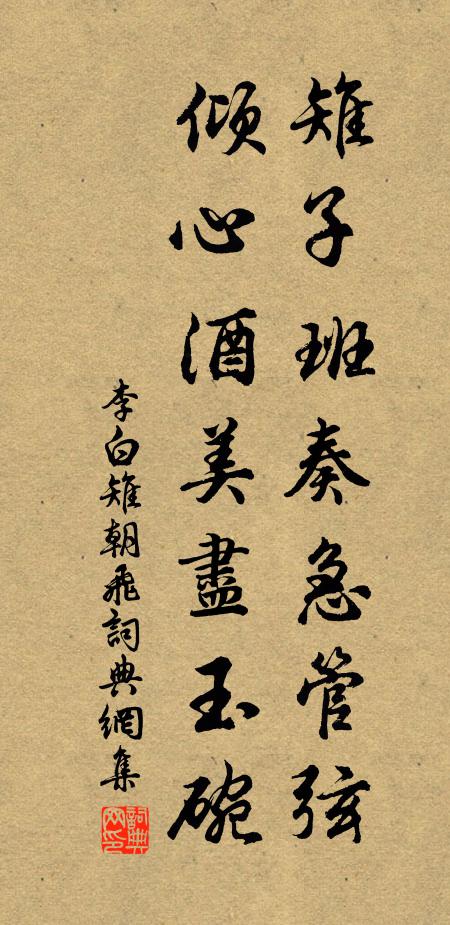 雉子班奏急管弦
傾心酒美盡玉碗
李白雉朝飛詞典網集
詞典網印